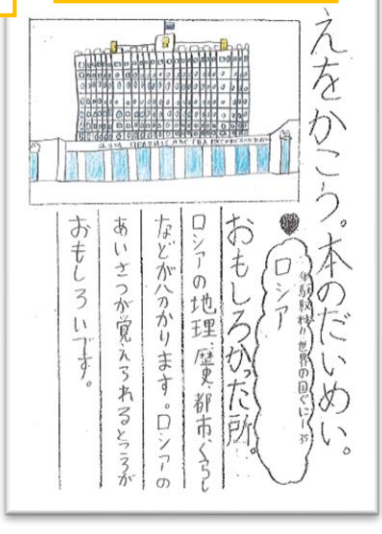 えをかこう。本のだいめい。
世界の国ぐに
ロシア
おもしろかった所。
ロシアの地理、歴史、都市、くらし
などが分かります。ロシアの
あいさつが覚えられるところが
おもしろいです。